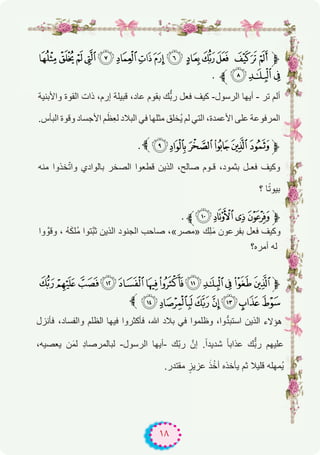 ﴿ أَلَمْ تَرَ كَيْفَ فَعَلَ رَبُّكَ بِعَادٍ ٦ إِرَمَ ذَاتِ الْعِمَادِ ٧ الَّتِي لَمْ يُخْلَقْ مِثْلُهَا
فِي الْبِلَـٰدِ ٨ ﴾ .
ألم تر - أيها الرسول- كيف فعل ربُّك بقوم عاد، قبيلة إرم، ذات القوة والأبنية
المرفوعة على الأعمدة، التي لم يُخلق مثلها في البلاد لعِظَم الأجساد وقوة البأس.
﴿ وَثَمُودَ الَّذِينَ جَابُوا الصَّخْرَ بِالْوَادِ ٩ ﴾ .
وكيف فعل بثمود، قوم صالح، الذين قطعوا الصخر بالوادي واتَّخذوا منه
بيوتًا ؟
﴿ وَفِرْعَوْنَ ذِي الْأَوْتَادِ ١٠ ﴾ .
وكيف فعل بفرعون مَلِك «مصر»، صاحب الجنود الذين ثبَّتوا مُلْكَهُ ، وقوَّوا
له أمره؟
﴿ الَّذِينَ طَغَوْا فِي الْبِلَـٰدِ ١١ فَأَكْثَرُوا فِيهَا الْفَسَادَ ١٢ فَصَبَّ عَلَيْهِمْ رَبُّكَ
سَوْطَ عَذَابٍ ١٣ إِنَّ رَبَّكَ لَبِالْمِرْصَادِ ١٤ ﴾
هؤلاء الذين استبدُّوا، وظلموا في بلاد الله، فأكثروا فيها الظلم والفساد، فأنزل
عليهم ربُّك عذاباً شديداً. إنَّ ربّك -أيها الرسول- لبالمرصادِ لمَن يعصيه،
يُمهله قليلا ثم يأخذه أخْذَ عزيزٍ مقتدر.
١٨